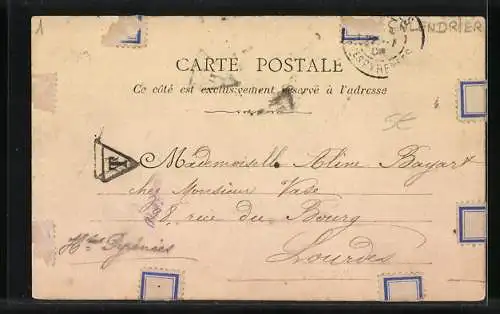 1
CALENDRIER
CARTE POSTALE
Ce côté est exclusivement réservé à l'adresse
T
Mademoiselle Aline Bayart
chez Monsieur Vase
8, rue du Bourg
Htes Pyrénées
Lourdes